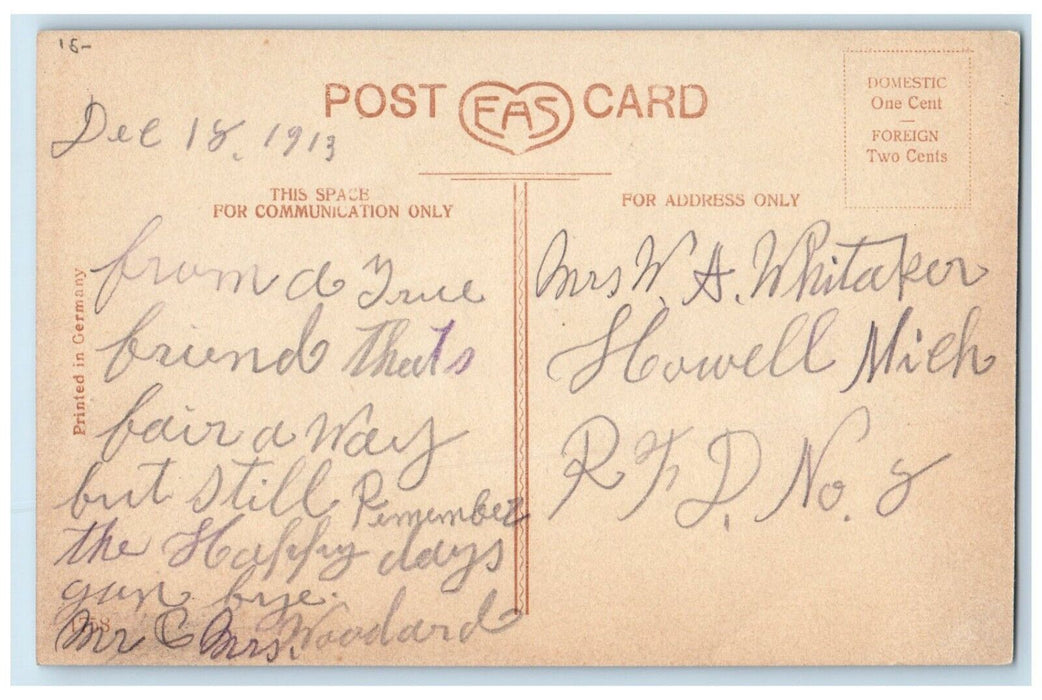 18-
POST EAS CARD
DOMESTIC
One Cent
FOREIGN
Two Cents
Dec 18, 1913
THIS SPACE
FOR COMMUNICATION ONLY
FOR ADDRESS ONLY
Printed in Germany
from a True
friend thats
fair a Way
but still Remember
the Happy days
gon bye.
Mr & Mrs. Woodard
Mrs W. A. Whitaker
Howell Mich
R F D. No. 8